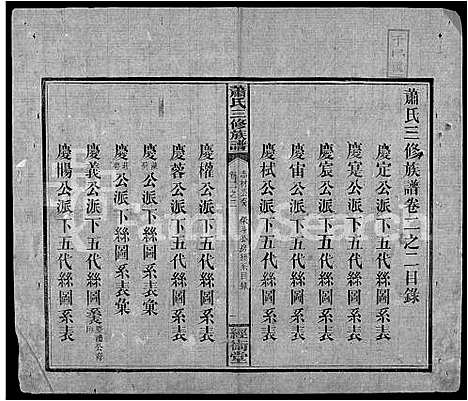 蕭氏三修族譜卷二之二目錄
慶定公派下五代絲圖系表
慶寔公派下五代絲圖系表
慶宸公派下五代絲圖系表
慶宙公派下五代絲圖系表
慶栻公派下五代絲圖系表
蕭氏三修族譜
經術堂
慶權公派下五代絲圖系表
慶蓉公派下五代絲圖系表
公派下絲圖系表彙
公派下絲圖系表彙
慶義公派下五代絲圖系
慶賜公派下五代絲圖系表